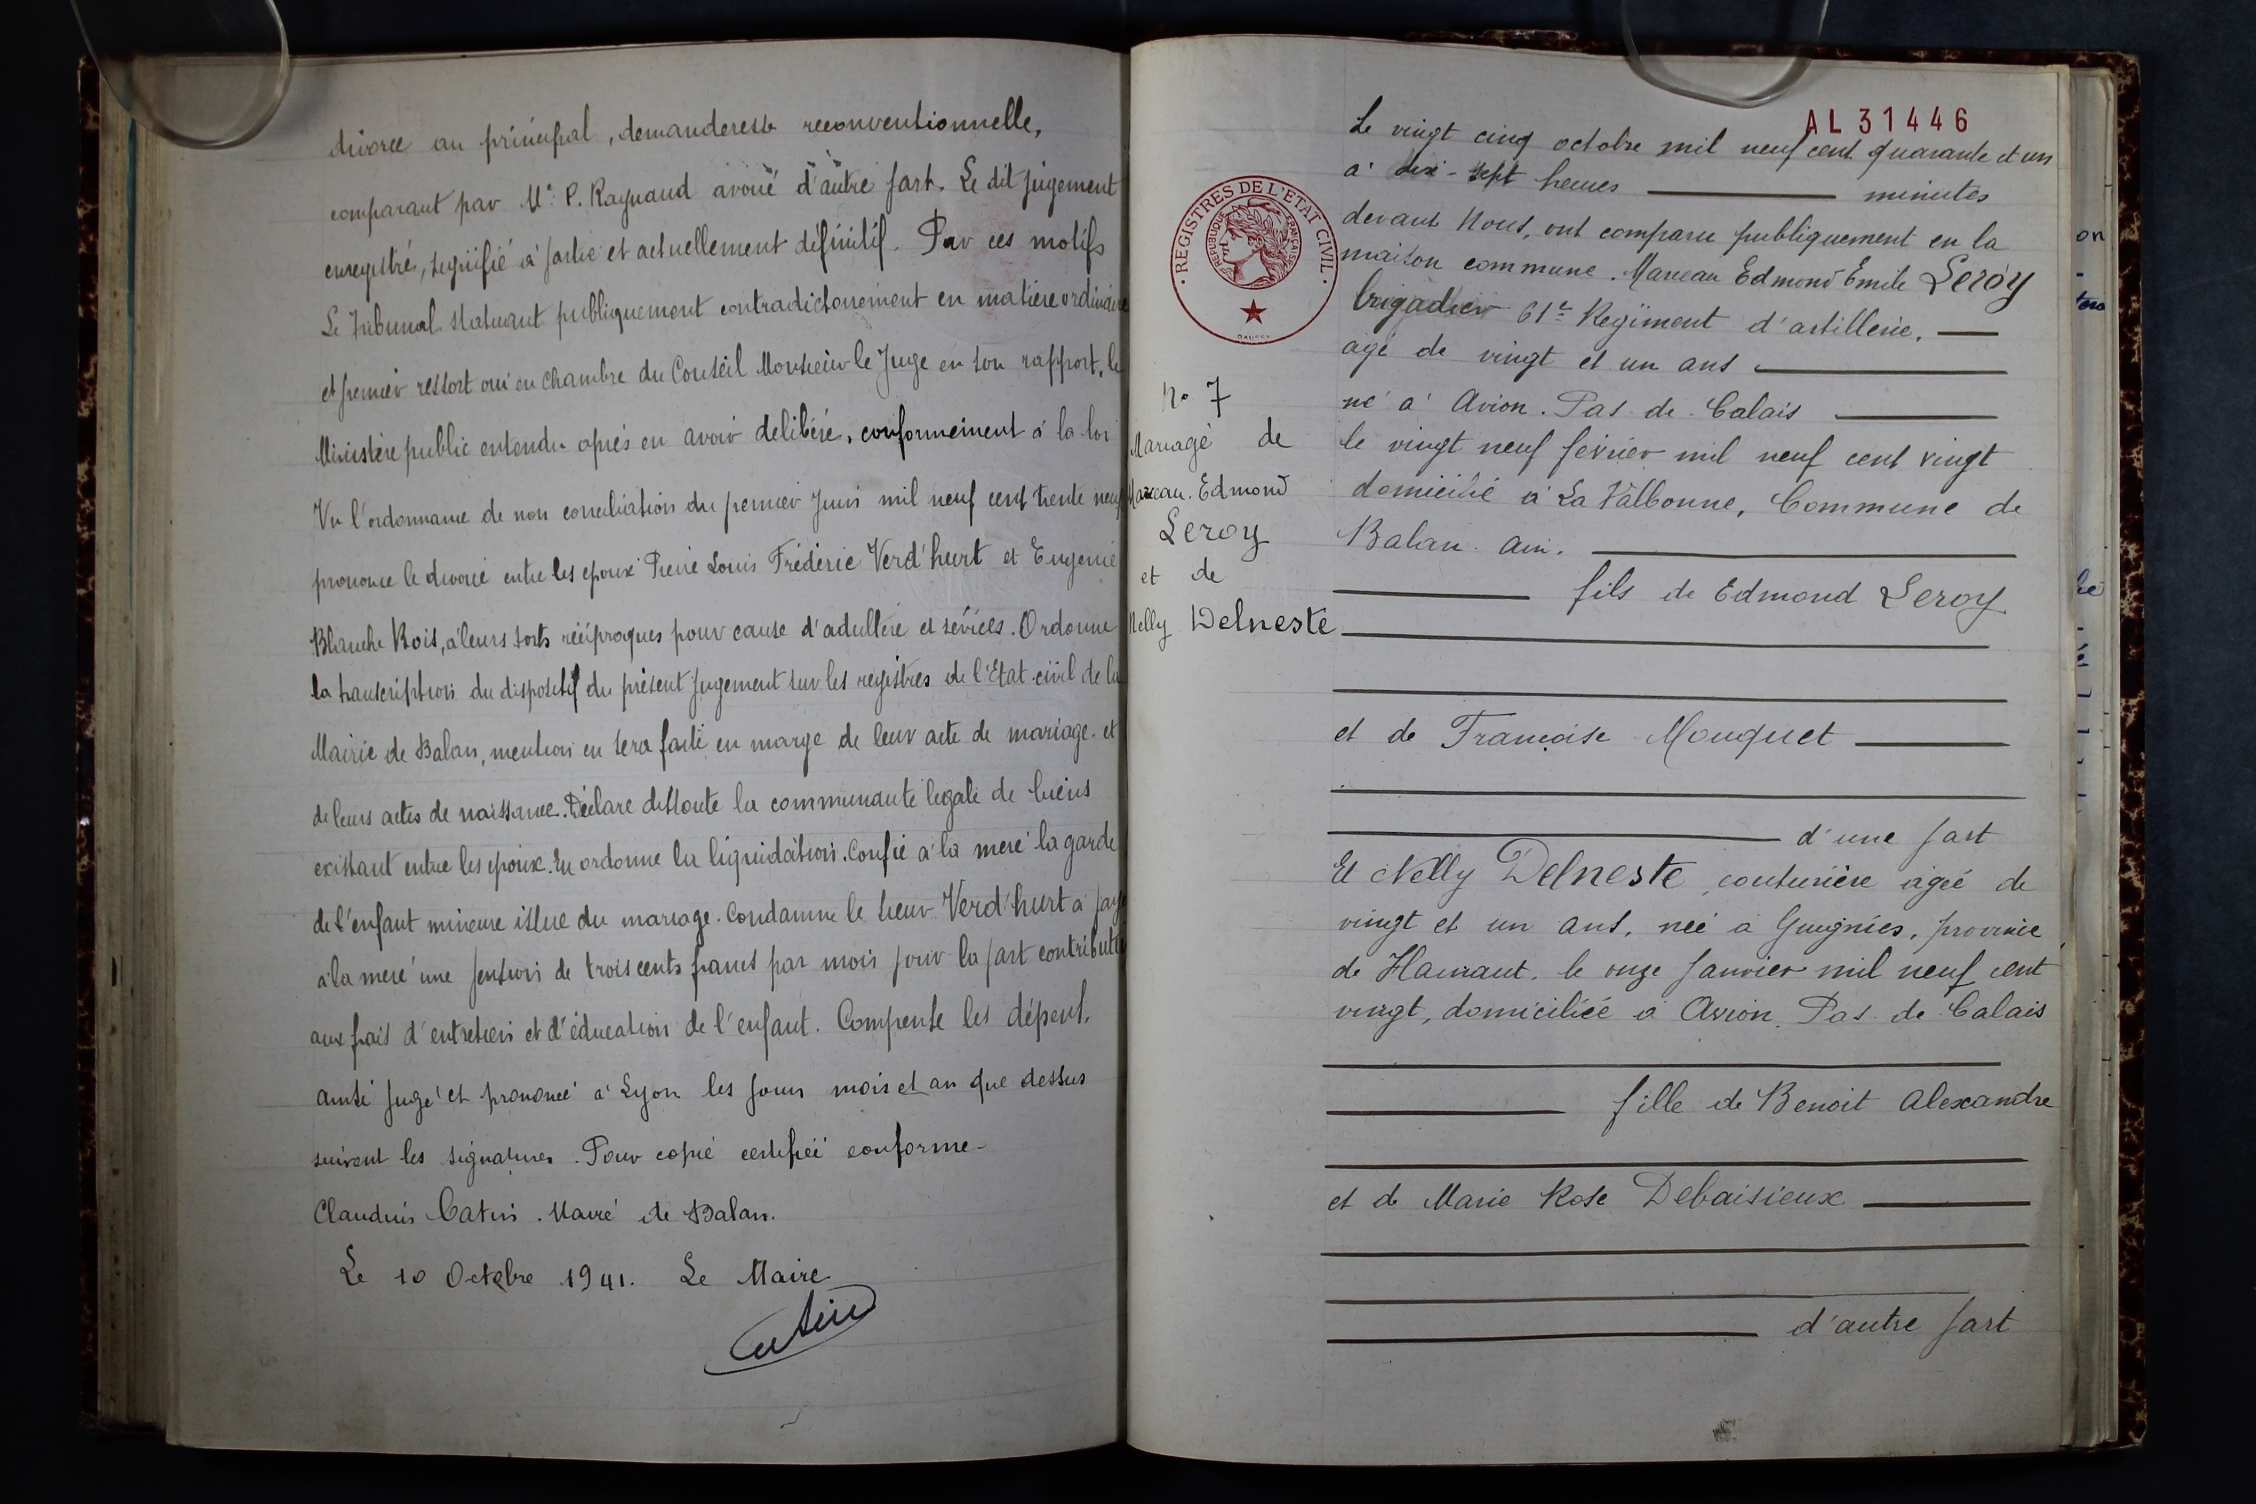 divorce au principal, demanderesse reconventionnelle,
comparant par Me P. Raynaud avoué d'autre part. Le dit jugement
enregistré, signifié à partie et actuellement définitif. Par ces motifs
Le Tribunal statuant publiquement contradictoirement en matière ordinaire
et premier ressort oui en chambre du Conseil Monsieur le Juge en son rapport, le
Ministère public entendu après en avoir délibéré, conformément à la loi
Vu l'ordonnance de non conciliation du premier Juin mil neuf cent trente neuf
prononce le divorce entre les époux Pierre Louis Frédéric Verd'hurt et Eugenie
Blanche Rois, à leurs torts réciproques pour cause d'adultère et sévices. Ordonne
la transcription du dispositif du présent jugement sur les registres de l'Etat civil de la
Mairie de Balan, mention en sera faite en marge de leur acte de mariage et
de leurs actes de naissance. Déclare dissoute la communauté légale de biens
existant entre les époux. En ordonne la liquidation. Confie à la mère la garde
de l'enfant mineure issue du mariage. Condamne le sieur Verd'hurt à
à la mère une pension de trois cents francs par mois pour la part
aux frais d'entretien et d'éducation de l'enfant. Compense les dépens,
ainsi jugé et prononcé à Lyon les jour mois et an que dessus
suivent les signatures. Pour copie certifiée conforme -
Claudius Catin. Maire de Balan.
Le 10 Octobre 1941. Le Maire
Catin
AL 31446
REGISTRES DE L'ETAT CIVIL
REPUBLIQUE FRANÇAISE
No 7
Mariage de
Marceau Edmond
Leroy
et de
Nelly Delneste
Le vingt cinq octobre mil neuf cent quarante et un
à dix-sept heures minutes
devant Nous, ont comparu publiquement en la
maison commune. Marceau Edmond Emile Leroy
brigadier 61e Régiment d'artillerie.
agé de vingt et un ans
né à Avion. Pas de Calais
le vingt neuf février mil neuf cent vingt
domicilié à La Valbonne, Commune de
Balan. Ain.
fils de Edmond Leroy
et de Françoise Mouquet
d'une part
Et Nelly Delneste, couturière agée de
vingt et un ans. née à Guignies, province
de Hainaut. le onze Janvier mil neuf cent
vingt, domiciliée à Avion. Pas de Calais
fille de Benoit Alexandre
et de Marie Rose Debaisieux
d'autre part